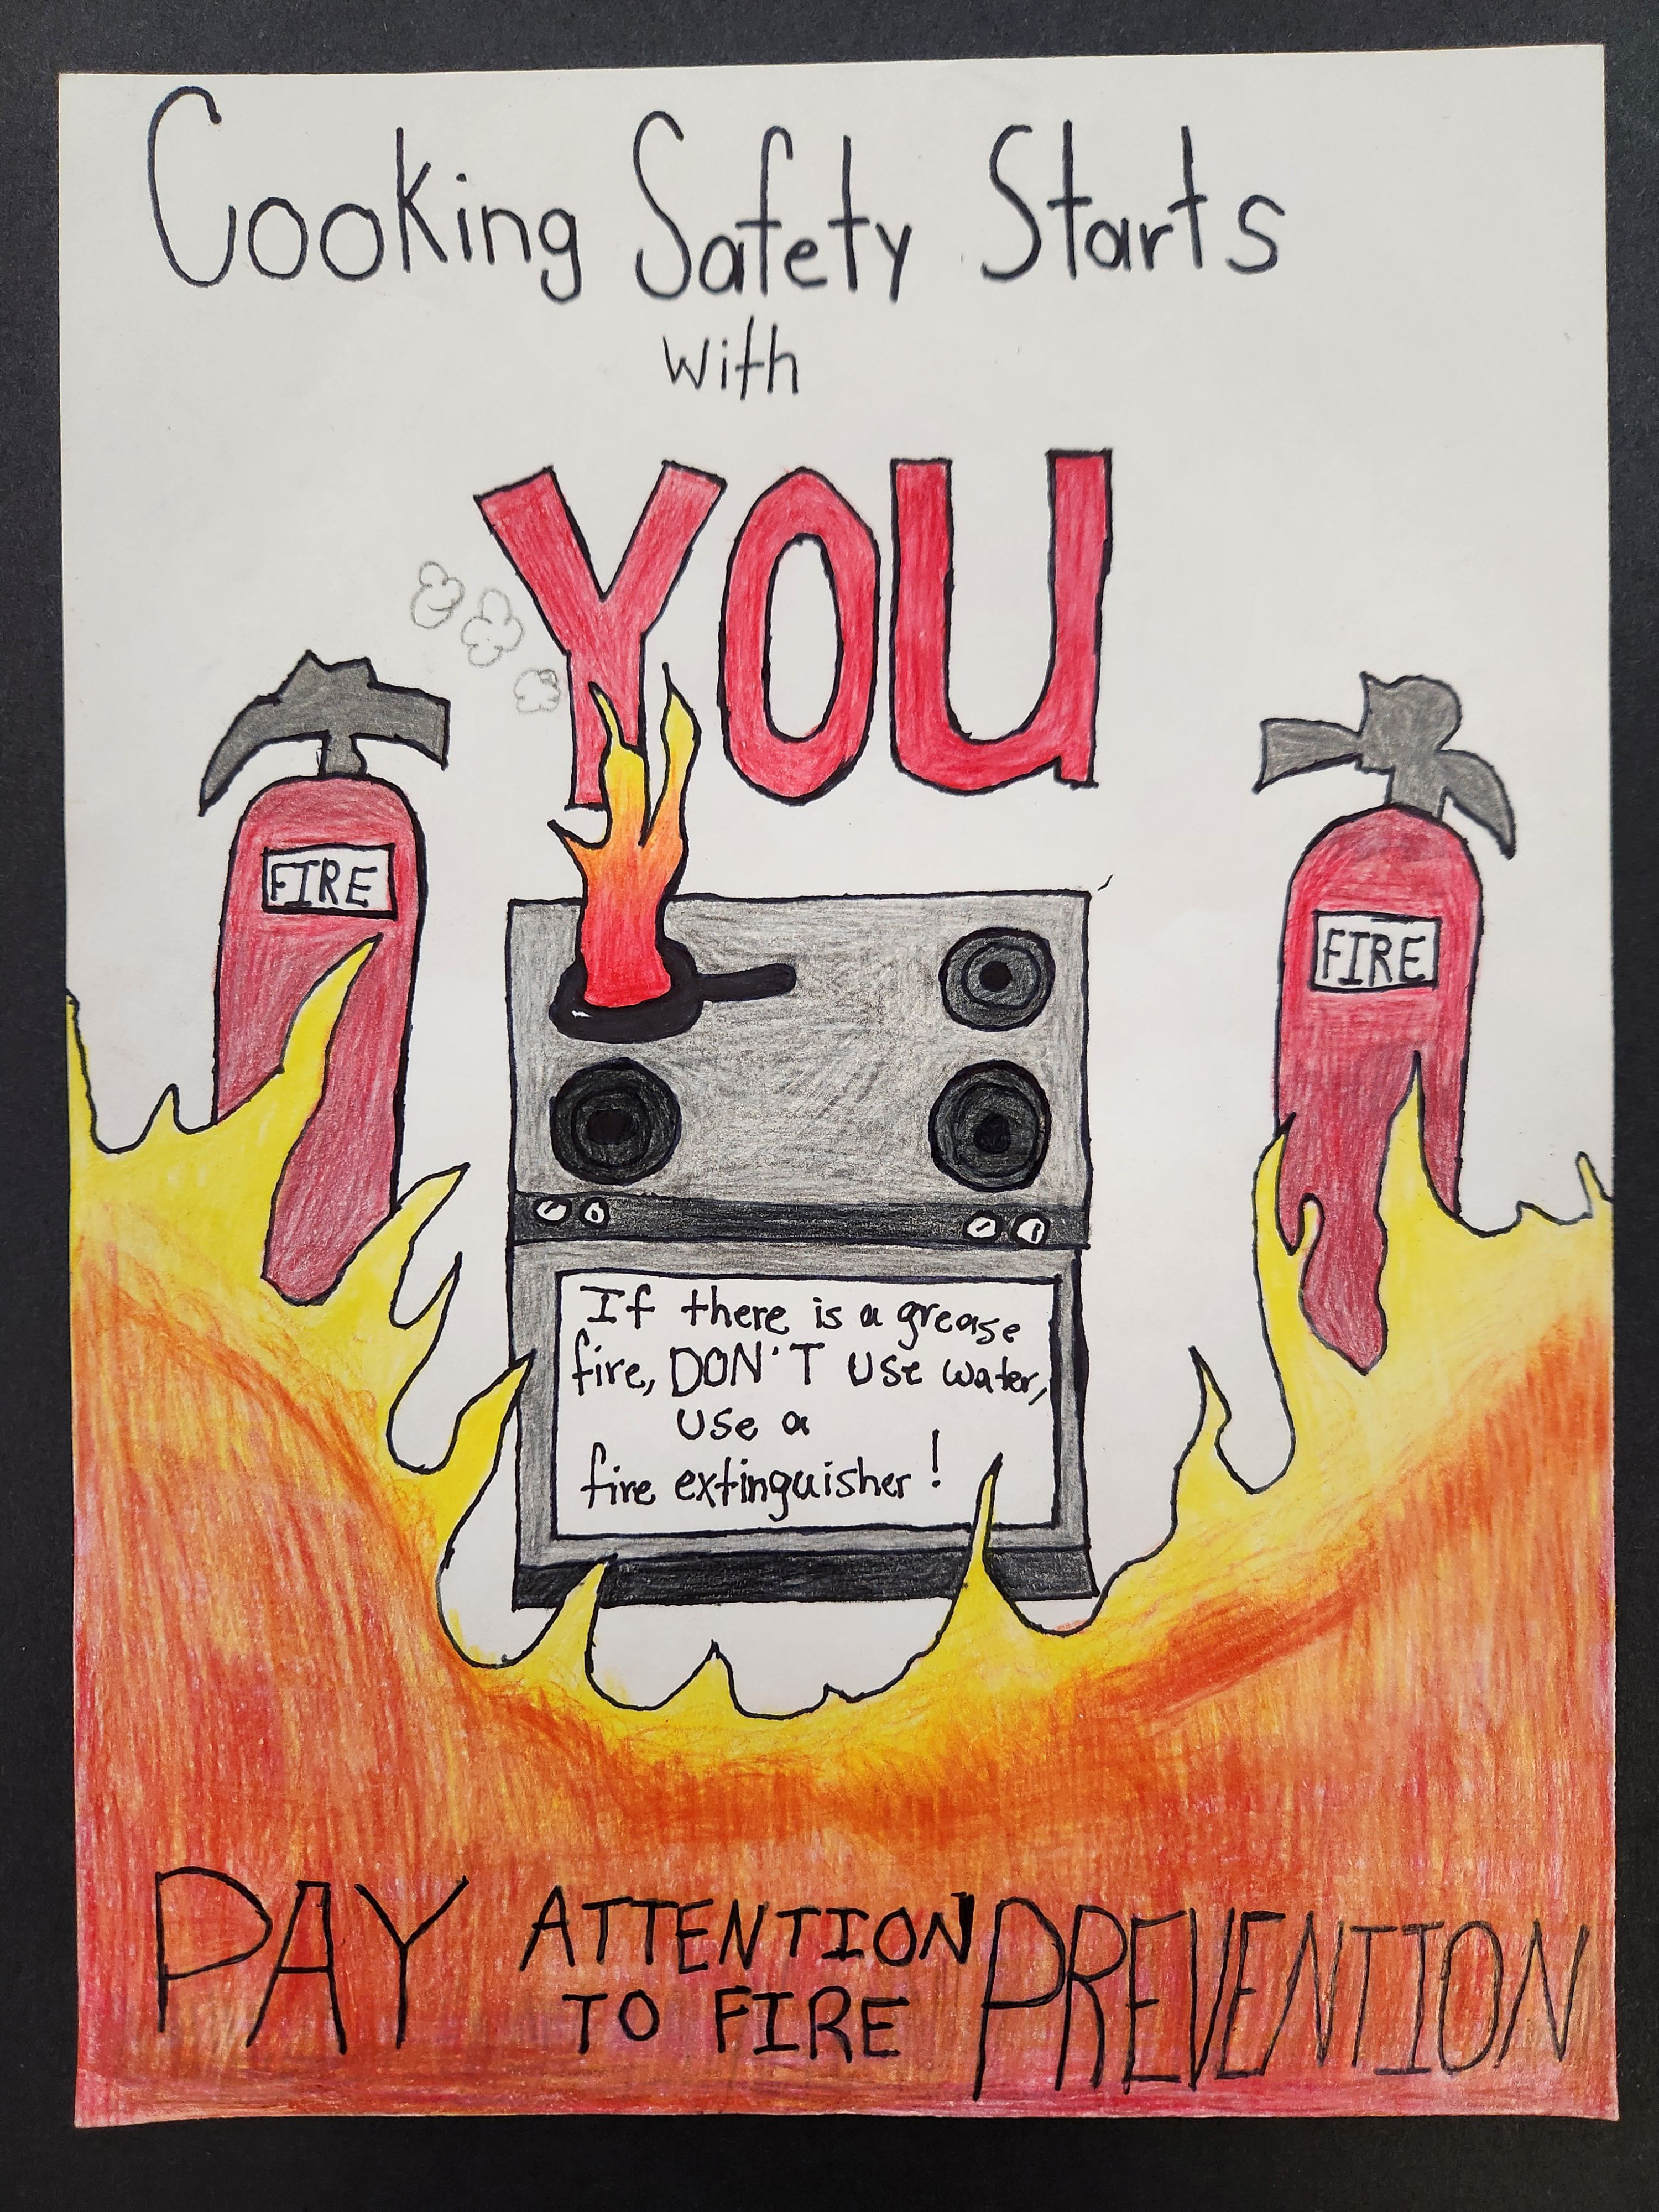 Cooking Safety Starts
with
YOU
FIRE
FIRE
If there is a grease
fire, DON'T use water,
use a
fire extinguisher!
PAY ATTENTION PREVENTION
TO FIRE